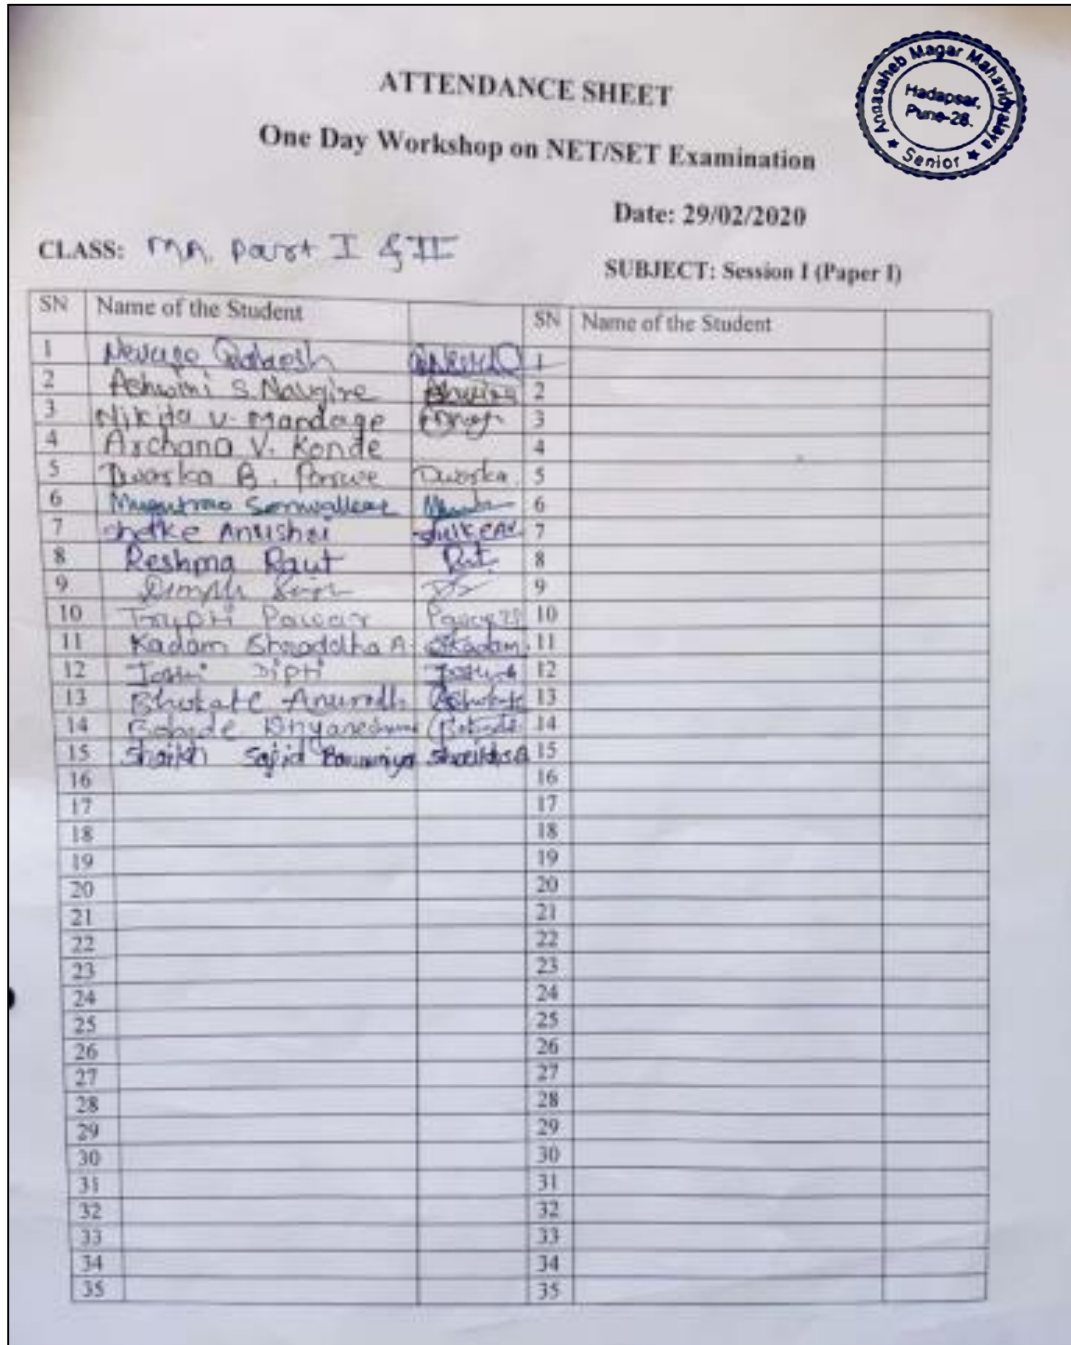 Annasaheb Magar Mahavidyalaya
Hadapsar,
Pune-28.
★ Senior ★
ATTENDANCE SHEET
One Day Workshop on NET/SET Examination
Date: 29/02/2020
CLASS: MA. Part I & II
SUBJECT: Session I (Paper I)
SN Name of the Student SN Name of the Student
1 Nevase 1
2 Ashwini S. Navgire 2
3 Nikita V. Mandage 3
4 Archana V. Konde 4
5 Dwarka B. Dwarka. 5
6 6
7 Shelke 7
8 Reshma Raut 8
9 9
10 Trupti Pawar 10
11 Kadam Shraddha A. Skadam. 11
12 Joshi Dipti 12
13 Bhukate Anuradh 13
14 Bobade 14
15 Shaikh Sajid 15
16 16
17 17
18 18
19 19
20 20
21 21
22 22
23 23
24 24
25 25
26 26
27 27
28 28
29 29
30 30
31 31
32 32
33 33
34 34
35 35